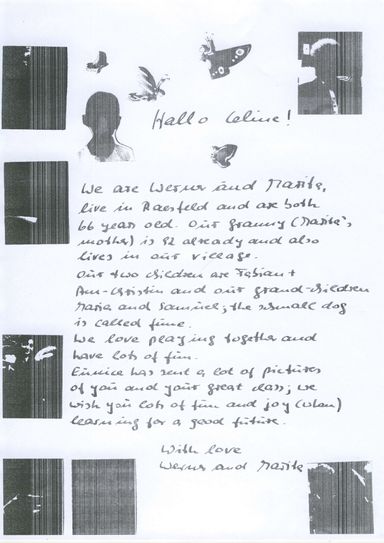 Hallo Celine!
We are Werner and Marita,
live in Raesfeld and are both
66 years old. Our granny (Marita's
mother) is 92 already and also
lives in our village.
Our two children are Fabian +
Ann-Christin and our grand-children
Maria and Samuel; the small dog
is called
We love playing together and
have lots of fun.
Eunice has sent a lot of pictures
of you and your great class; we
wish you lots of fun and joy (when)
learning for a good future.
With love
Werner and Marita